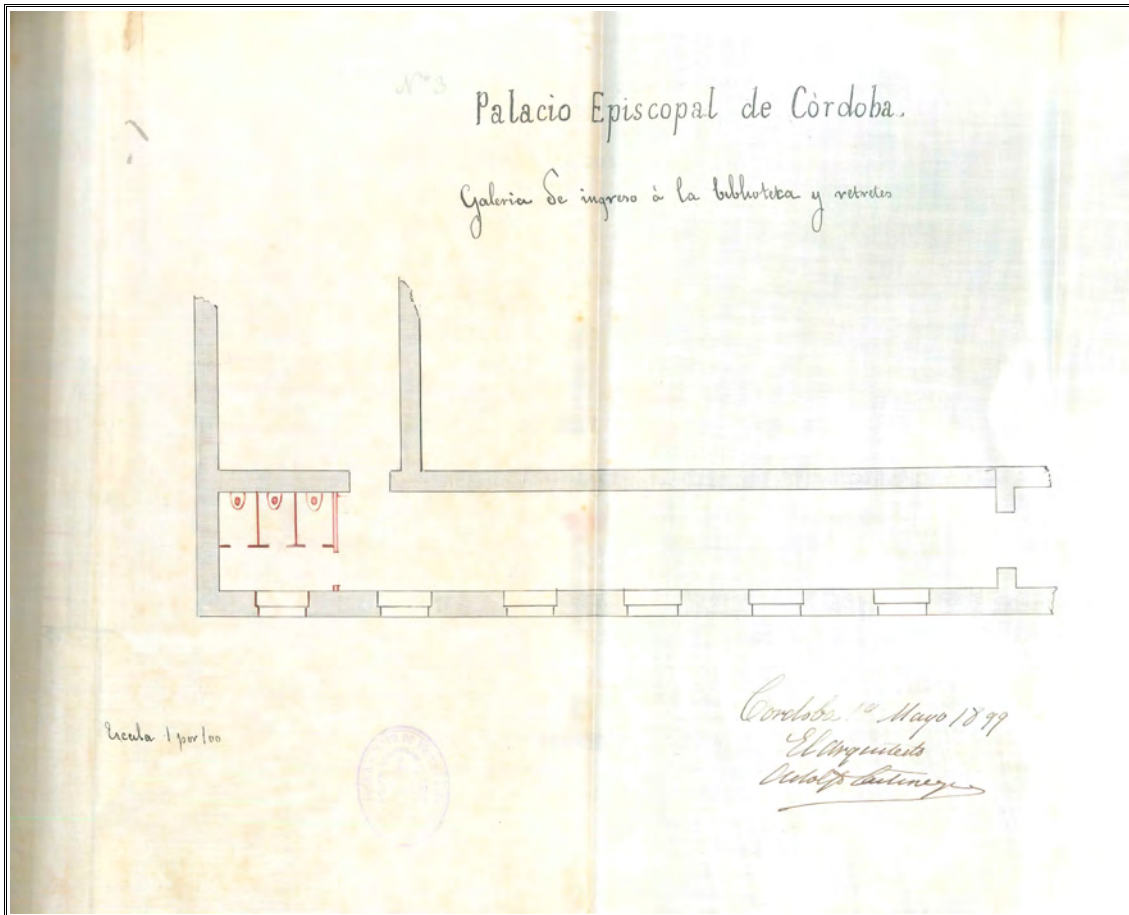 Nº 3
Palacio Episcopal de Còrdoba.
Galeria de ingreso à la biblioteca y retretes
Escala 1 por 100
Cordoba 1º Mayo 1899
El Arquitecto
Adolfo Castiñeyra